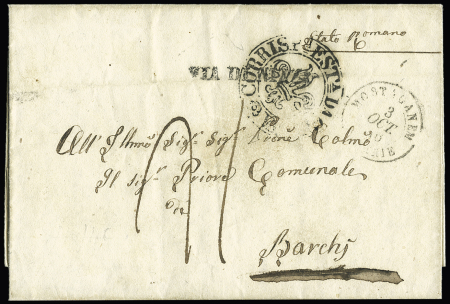 Stato Romano
VIA DI
CORRISP ESTA DA
MOSTAGANEM
3
OCT
All' Illmo Sigr Sigr Prone Colmo
Il sigr Priore Comunale
di
Barchi